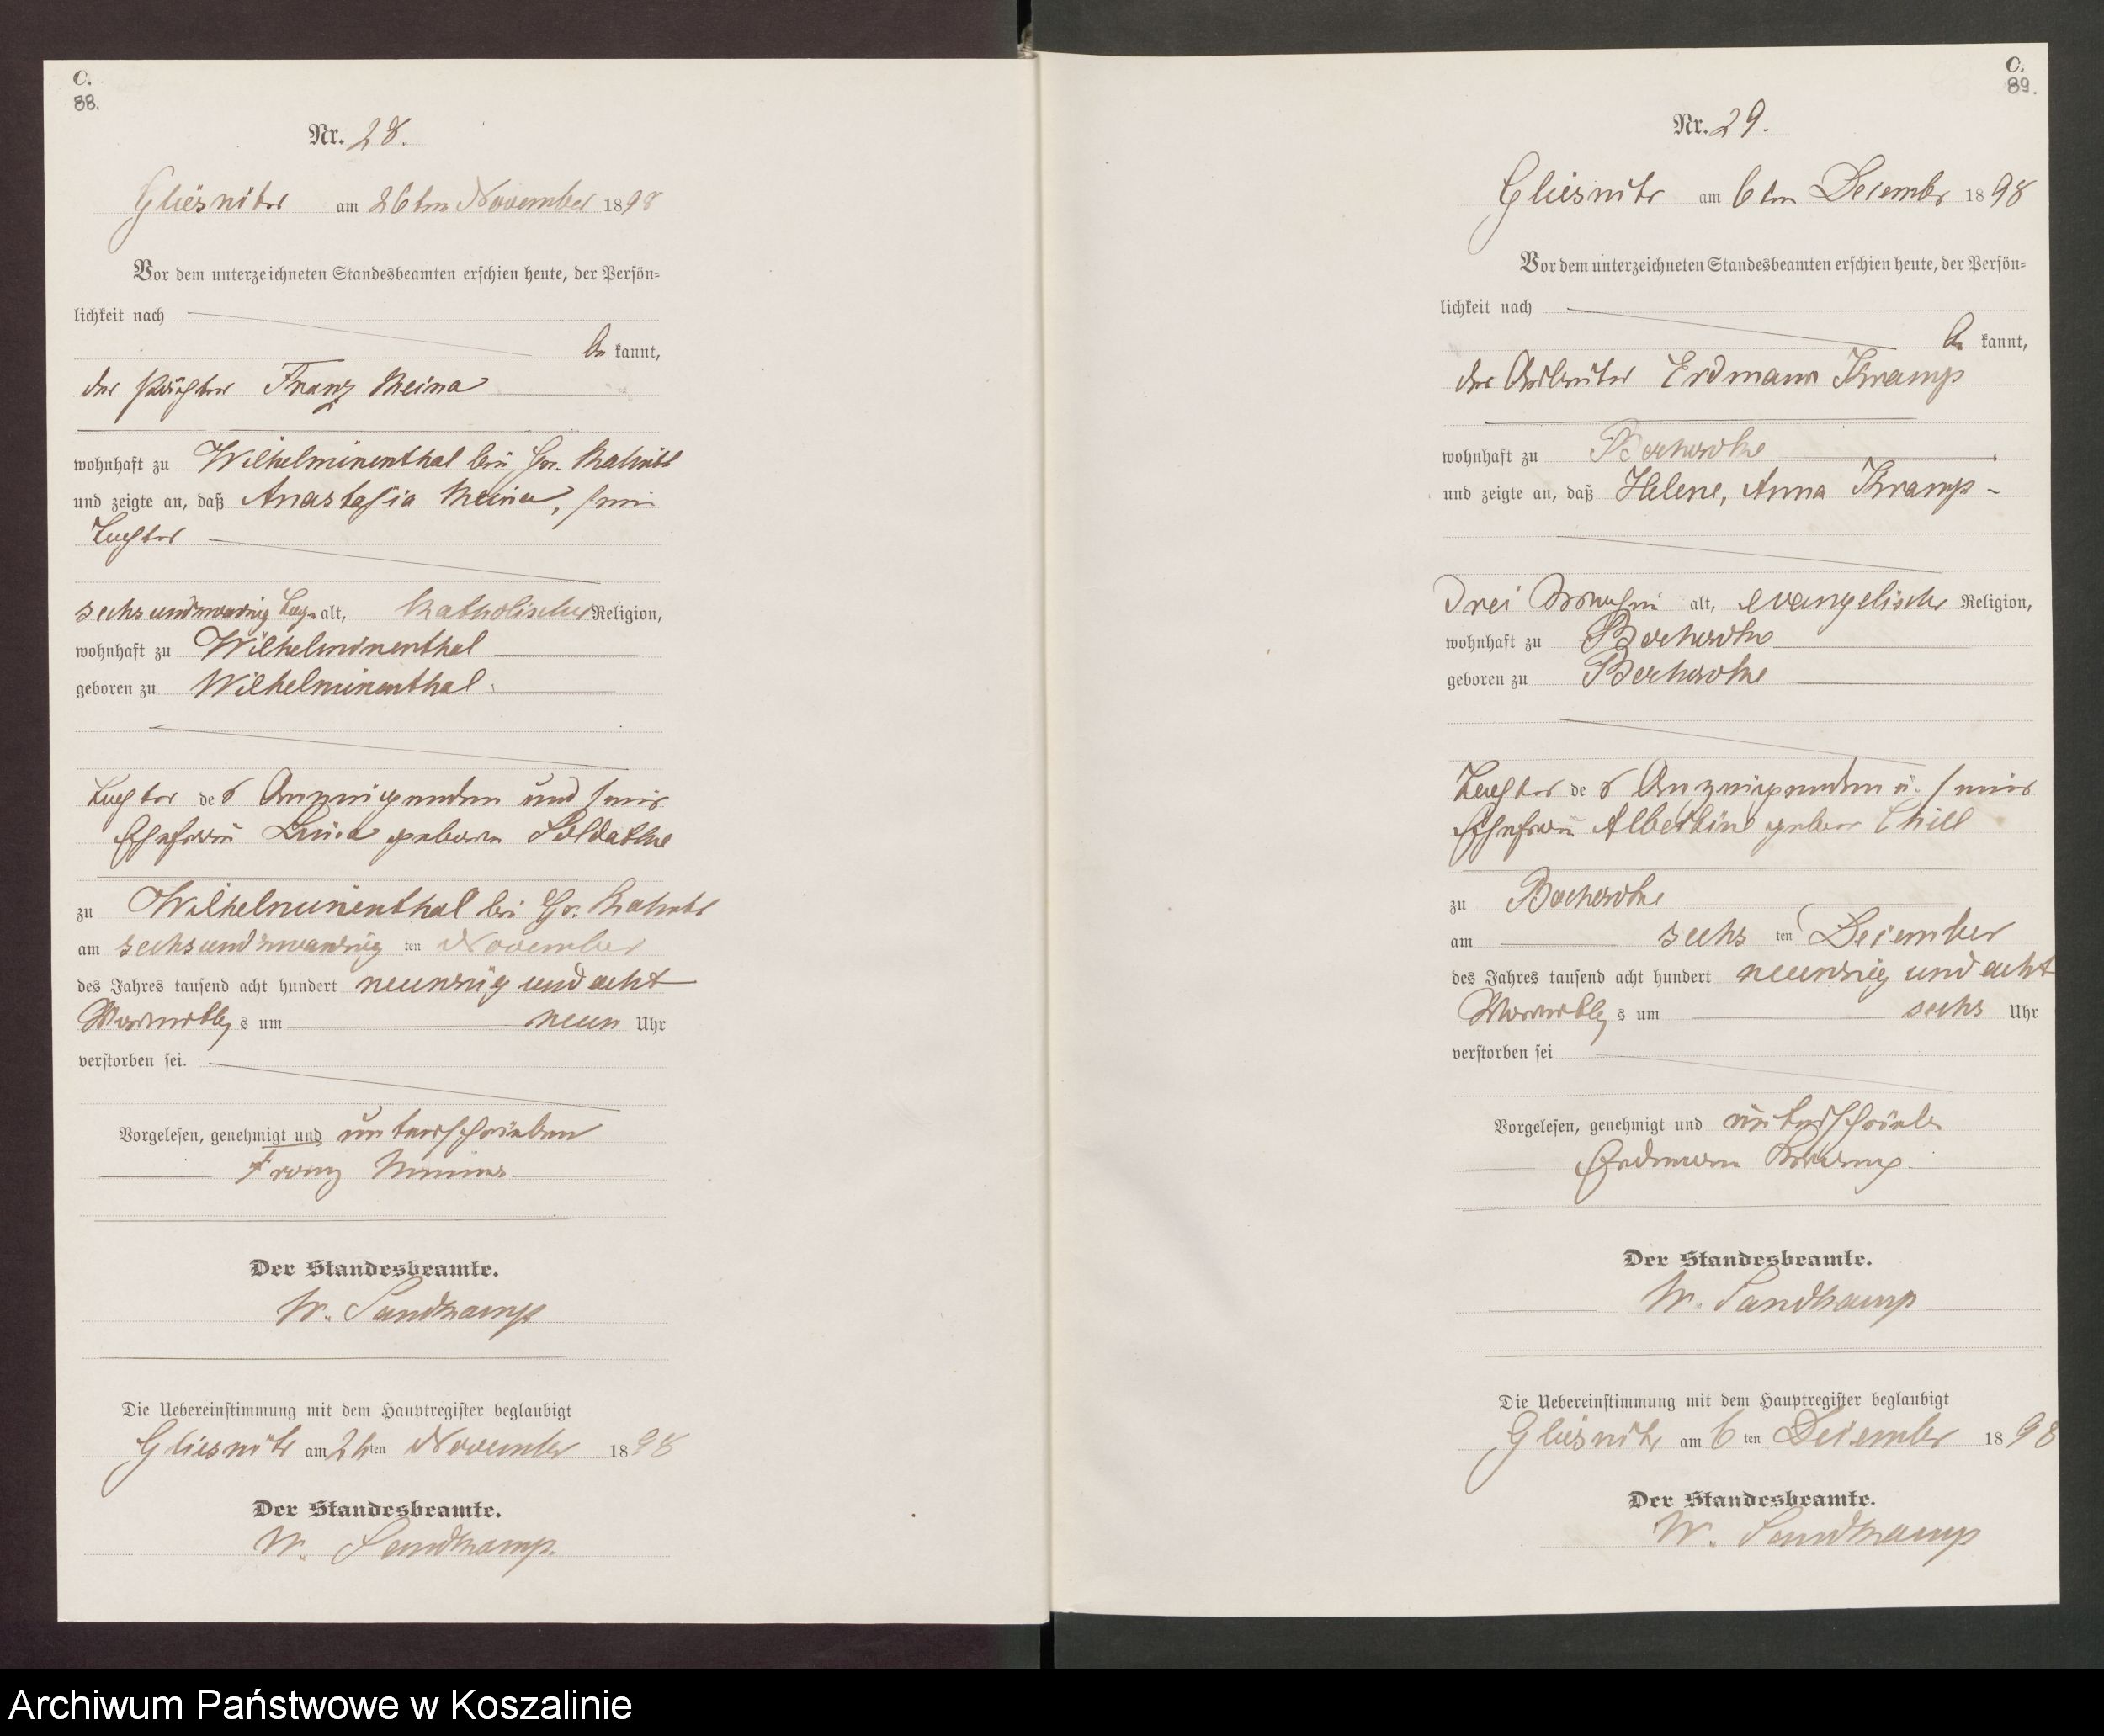 C.
88.
Nr. 28.
Gliesnitz am 26ten November 1898
Vor dem unterzeichneten Standesbeamten erschien heute, der Persön-
lichkeit nach
be kannt,
der Pächter Franz Meina
wohnhaft zu Wilhelminenthal bei Gr.
und zeigte an, daß Anastasia Meina, seine
Tochter
sechsundzwanzig Tage alt, katholischer Religion,
wohnhaft zu Wilhelminenthal
geboren zu Wilhelminenthal
Tochter des Anzeigenden und seiner
Ehefrau geborene Soldatke
zu Wilhelminenthal bei Gr.
am sechsundzwanzig ten November
des Jahres tausend acht hundert neunzig und acht
Vormittags um neun Uhr
verstorben sei.
Vorgelesen, genehmigt und unterschrieben
Franz
Der Standesbeamte.
W. Sandkamp
Die Uebereinstimmung mit dem Hauptregister beglaubigt
Gliesnitz am 26ten November 1898
Der Standesbeamte.
W. Sandkamp.
C.
89.
Nr. 29.
Gliesnitz am 6ten Dezember 1898
Vor dem unterzeichneten Standesbeamten erschien heute, der Persön-
lichkeit nach
be kannt,
der Arbeiter Erdmann Kramp
wohnhaft zu
und zeigte an, daß Helene, Anna Kramp
drei Wochen alt, evangelischer Religion,
wohnhaft zu
geboren zu
Tochter des Anzeigenden u. seiner
Ehefrau Albertine geborene
zu
am sechs ten Dezember
des Jahres tausend acht hundert neunzig und acht
Vormittags um sechs Uhr
verstorben sei
Vorgelesen, genehmigt und unterschrieben
Erdmann Kramp
Der Standesbeamte.
W. Sandkamp
Die Uebereinstimmung mit dem Hauptregister beglaubigt
Gliesnitz am 6ten Dezember 1898
Der Standesbeamte.
W. Sandkamp
Archiwum Państwowe w Koszalinie